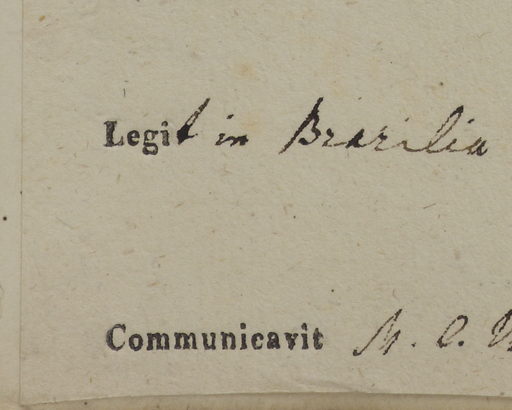 Legit in Brazilia
Communicavit M. C.